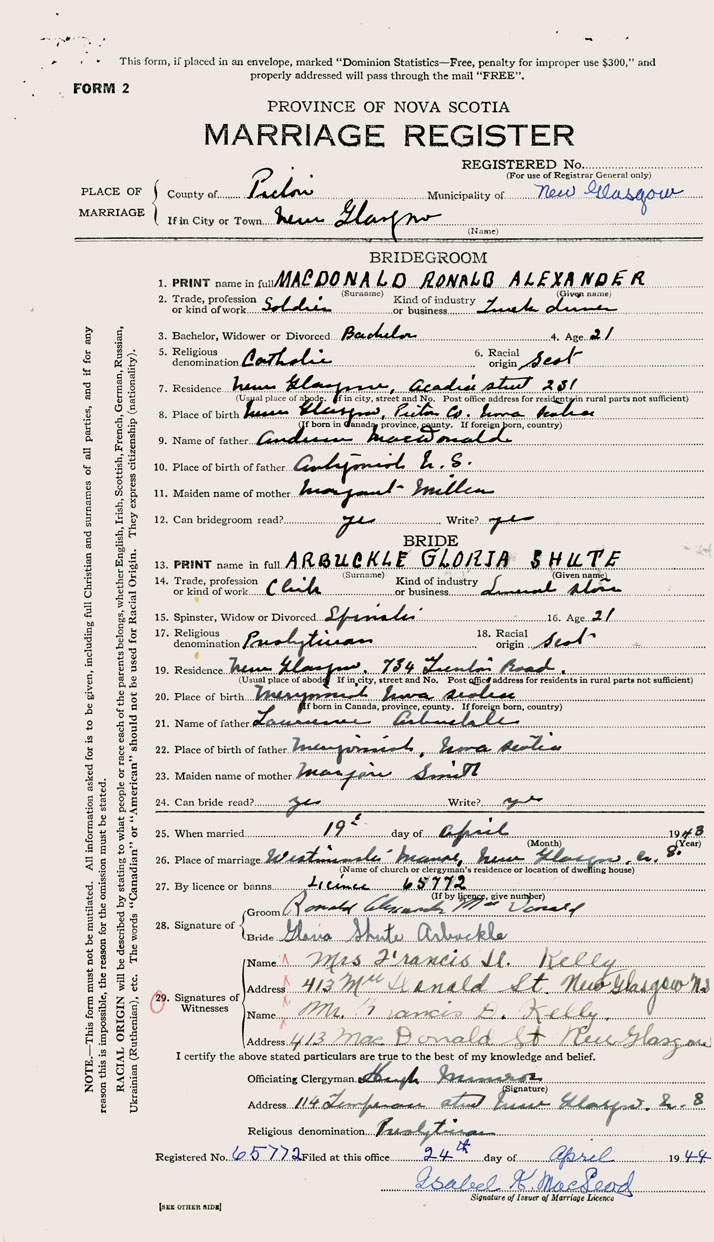 This form, if placed in an envelope, marked "Dominion Statistics—Free, penalty for improper use $300," and
properly addressed will pass through the mail "FREE".
FORM 2
PROVINCE OF NOVA SCOTIA
MARRIAGE REGISTER
REGISTERED No.
(For use of Registrar General only)
PLACE OF MARRIAGE
County of Pictou Municipality of New Glasgow
If in City or Town New Glasgow
(Name)
BRIDEGROOM
1. PRINT name in full MACDONALD RONALD ALEXANDER
(Surname) (Given name)
2. Trade, profession or kind of work Soldier Kind of industry or business Truck driver
3. Bachelor, Widower or Divorced Bachelor 4. Age 21
5. Religious denomination Catholic 6. Racial origin Scot
7. Residence New Glasgow, Acadia street 231
(Usual place of abode. If in city, street and No. Post office address for residents in rural parts not sufficient)
8. Place of birth New Glasgow, Pictou Co. Nova Scotia
(If born in Canada, province, county. If foreign born, country)
9. Name of father Andrew MacDonald
10. Place of birth of father Antigonish N. S.
11. Maiden name of mother Margaret Miller
12. Can bridegroom read? yes Write? yes
BRIDE
13. PRINT name in full ARBUCKLE GLORIA SHUTE
(Surname) (Given name)
14. Trade, profession or kind of work Clerk Kind of industry or business General store
15. Spinster, Widow or Divorced Spinster 16. Age 21
17. Religious denomination Presbyterian 18. Racial origin Scot
19. Residence New Glasgow, 734 Trenton Road.
(Usual place of abode. If in city, street and No. Post office address for residents in rural parts not sufficient)
20. Place of birth Merigomish Nova Scotia
(If born in Canada, province, county. If foreign born, country)
21. Name of father Lawrence Arbuckle
22. Place of birth of father Merigomish, Nova Scotia
23. Maiden name of mother Marjorie Smith
24. Can bride read? yes Write? yes
25. When married 19th day of April 1943
(Month) (Year)
26. Place of marriage Westminster Manse, New Glasgow, N. S.
(Name of church or clergyman's residence or location of dwelling house)
27. By licence or banns Licence 65772
(If by licence, give number)
28. Signature of
Groom Ronald Alexander MacDonald
Bride Gloria Shute Arbuckle
29. Signatures of Witnesses
Name Mrs Francis D. Kelly
Address 413 MacDonald St. New Glasgow NS
Name Mr. Francis D. Kelly.
Address 413 MacDonald St New Glasgow
I certify the above stated particulars are true to the best of my knowledge and belief.
Officiating Clergyman Hugh Munroe
(Signature)
Address 114 Temperance street New Glasgow. N. S
Religious denomination Presbyterian
Registered No. 65772 Filed at this office 24th day of April 1944
Isabel K. MacLeod
Signature of Issuer of Marriage Licence
[SEE OTHER SIDE]
NOTE.—This form must not be mutilated. All information asked for is to be given, including full Christian and surnames of all parties, and if for any
reason this is impossible, the reason for the omission must be stated.
RACIAL ORIGIN will be described by stating to what people or race each of the parents belongs, whether English, Irish, Scottish, French, German, Russian,
Ukrainian (Ruthenian), etc. The words "Canadian" or "American" should not be used for Racial Origin. They express citizenship (nationality).